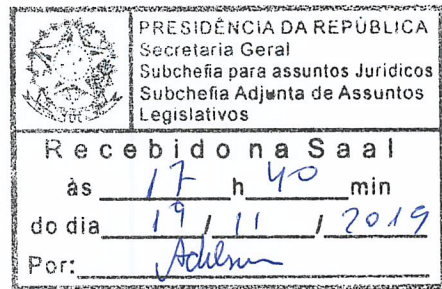 PRESIDÊNCIA DA REPÚBLICA
Secretaria Geral
Subchefia para assuntos Jurídicos
Subchefia Adjunta de Assuntos
Legislativos
Recebido na Saal
às 17 h 40 min
do dia 19 / 11 / 2019
Por: